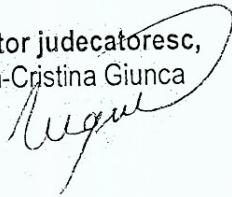 tor judecatoresc,
-Cristina Giunca